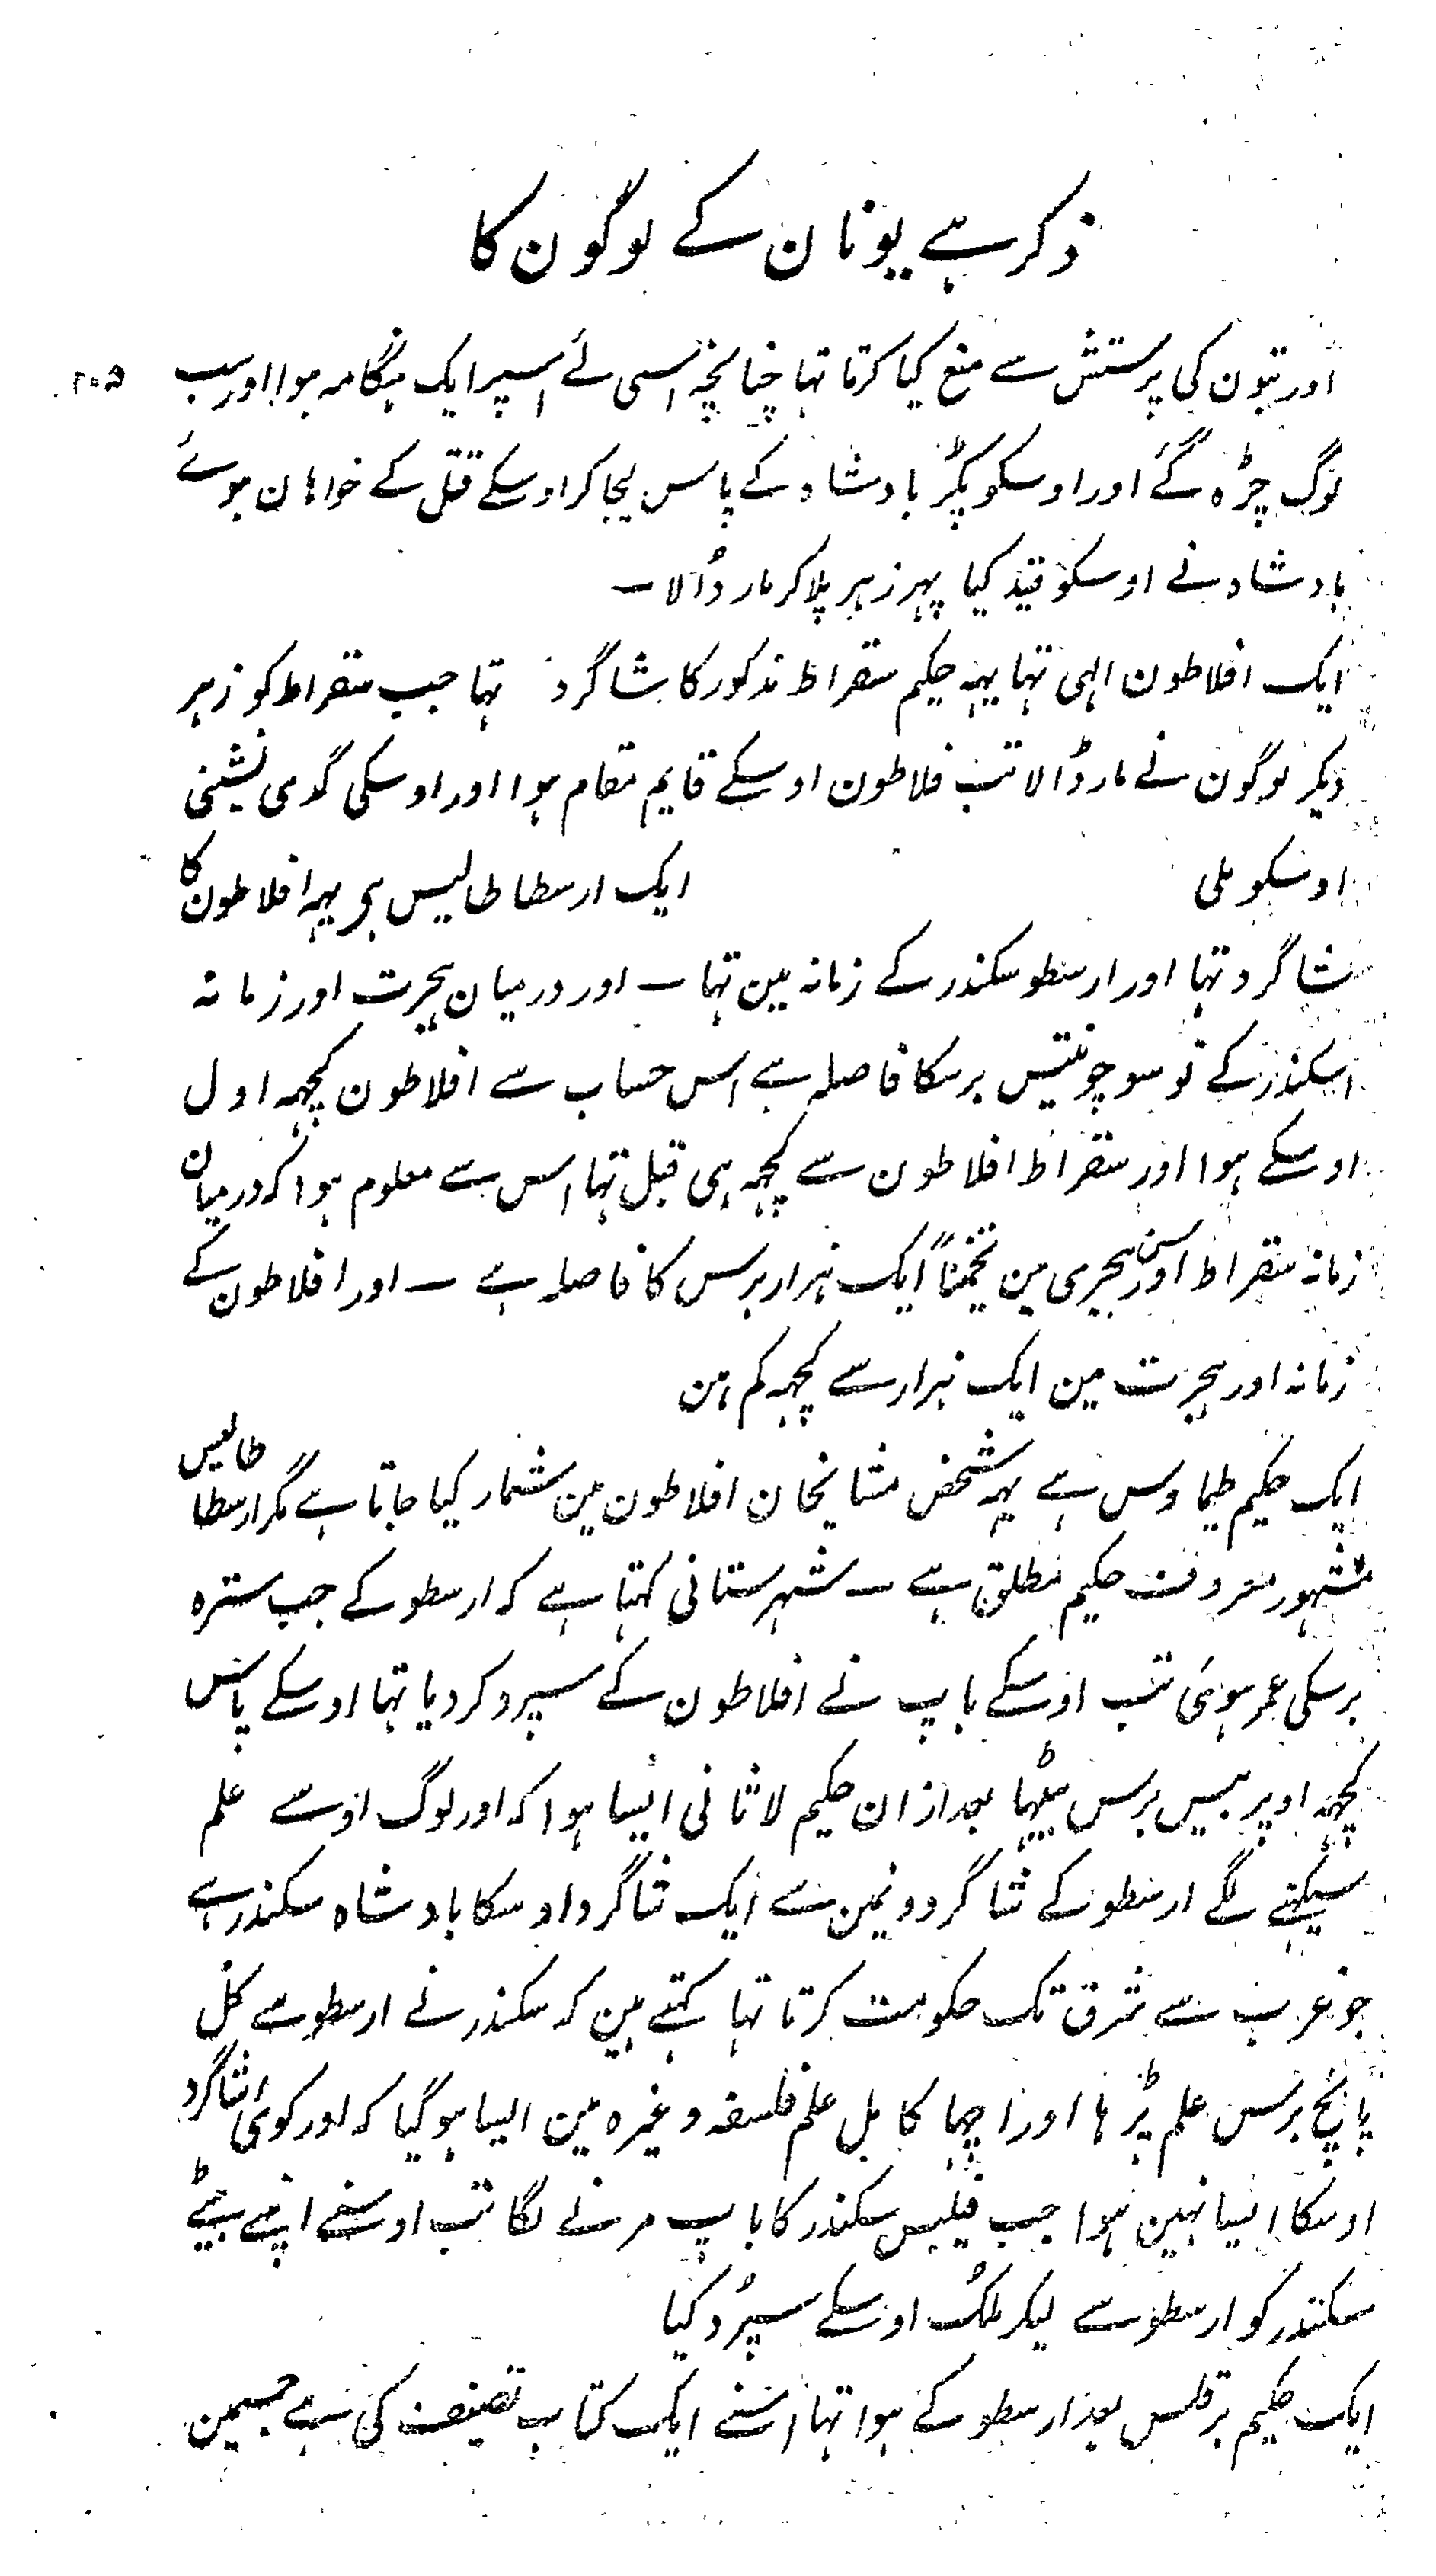 ذکر ہے یونان کے لوگون کا
اور بتون کی پرستش سے منع کیا کرتا تہا چنانچہ اسی لئے اسپر ایک ہنگامہ ہوا اور سب
لوگ چڑہ گئے اور اوسکو پکڑ بادشاہ کے پاس لیجا کر اوسکے قتل کے خواہان ہوئے
بادشاہ نے اوسکو قید کیا پہر زہر پلا کر مار ڈالا ــ
ایک افلاطون الہی تہا یہہ حکیم سقراط مذکور کا شاگرد تہا جب سقراط کو زہر
دیکر لوگون نے مار ڈالا تب فلاطون اوسکے قایم مقام ہوا اور اوسکی گدی نشینی
اوسکو ملی ایک ارسطاطالیس ہی یہہ افلاطون کا
شاگرد تہا اور ارسطو سکندر کے زمانہ مین تہا ــ اور درمیان ہجرت اور زمانہ
اسکندر کے نو سو چونتیس برسکا فاصلہ ہے اس حساب سے افلاطون کچہہ اول
اوسکے ہوا اور سقراط افلاطون سے کچہہ ہی قبل تہا اس سے معلوم ہوا کہ درمیان
زمانہ سقراط اور سن ہجری مین تخمیناً ایک ہزار برس کا فاصلہ ہے ــ اور افلاطون کے
زمانہ اور ہجرت مین ایک ہزار سے کچہہ کم ہین
ایک حکیم طیماوس ہے یہہ شخص مشایخان افلاطون مین شمار کیا جاتا ہے مگر ارسطاطالیس
مشہور معروف حکیم مطلق ہے ــ شہرستانی کہتا ہے کہ ارسطو کے جب سترہ
برسکی عمر ہوئی تب اوسکے باپ نے افلاطون کے سپرد کردیا تہا اوسکے پاس
کچہہ اوپر بیس برس بیٹہا بعد ازان حکیم لاثانی ایسا ہوا کہ اور لوگ اوسے علم
سیکہنے لگے ارسطو کے شاگردونمین سے ایک شاگرد اوسکا بادشاہ سکندر ہے
جو غرب سے شرق تک حکومت کرتا تہا کہتے ہین کہ سکندر نے ارسطو سے کل
پانچ برس علم پڑہا اور اچہا کامل علم فلسفہ وغیرہ مین ایسا ہوگیا کہ اور کوی شاگرد
اوسکا ایسا نہین ہوا جب فیلبس سکندر کا باپ مرنے لگا تب اوسنے اپنے بیٹے
سکندر کو ارسطو سے لیکر ملک اوسکے سپرد کیا
ایک حکیم برقلس بعد ارسطو کے ہوا تہا اسنے ایک کتاب تصنیف کی ہے جسمین